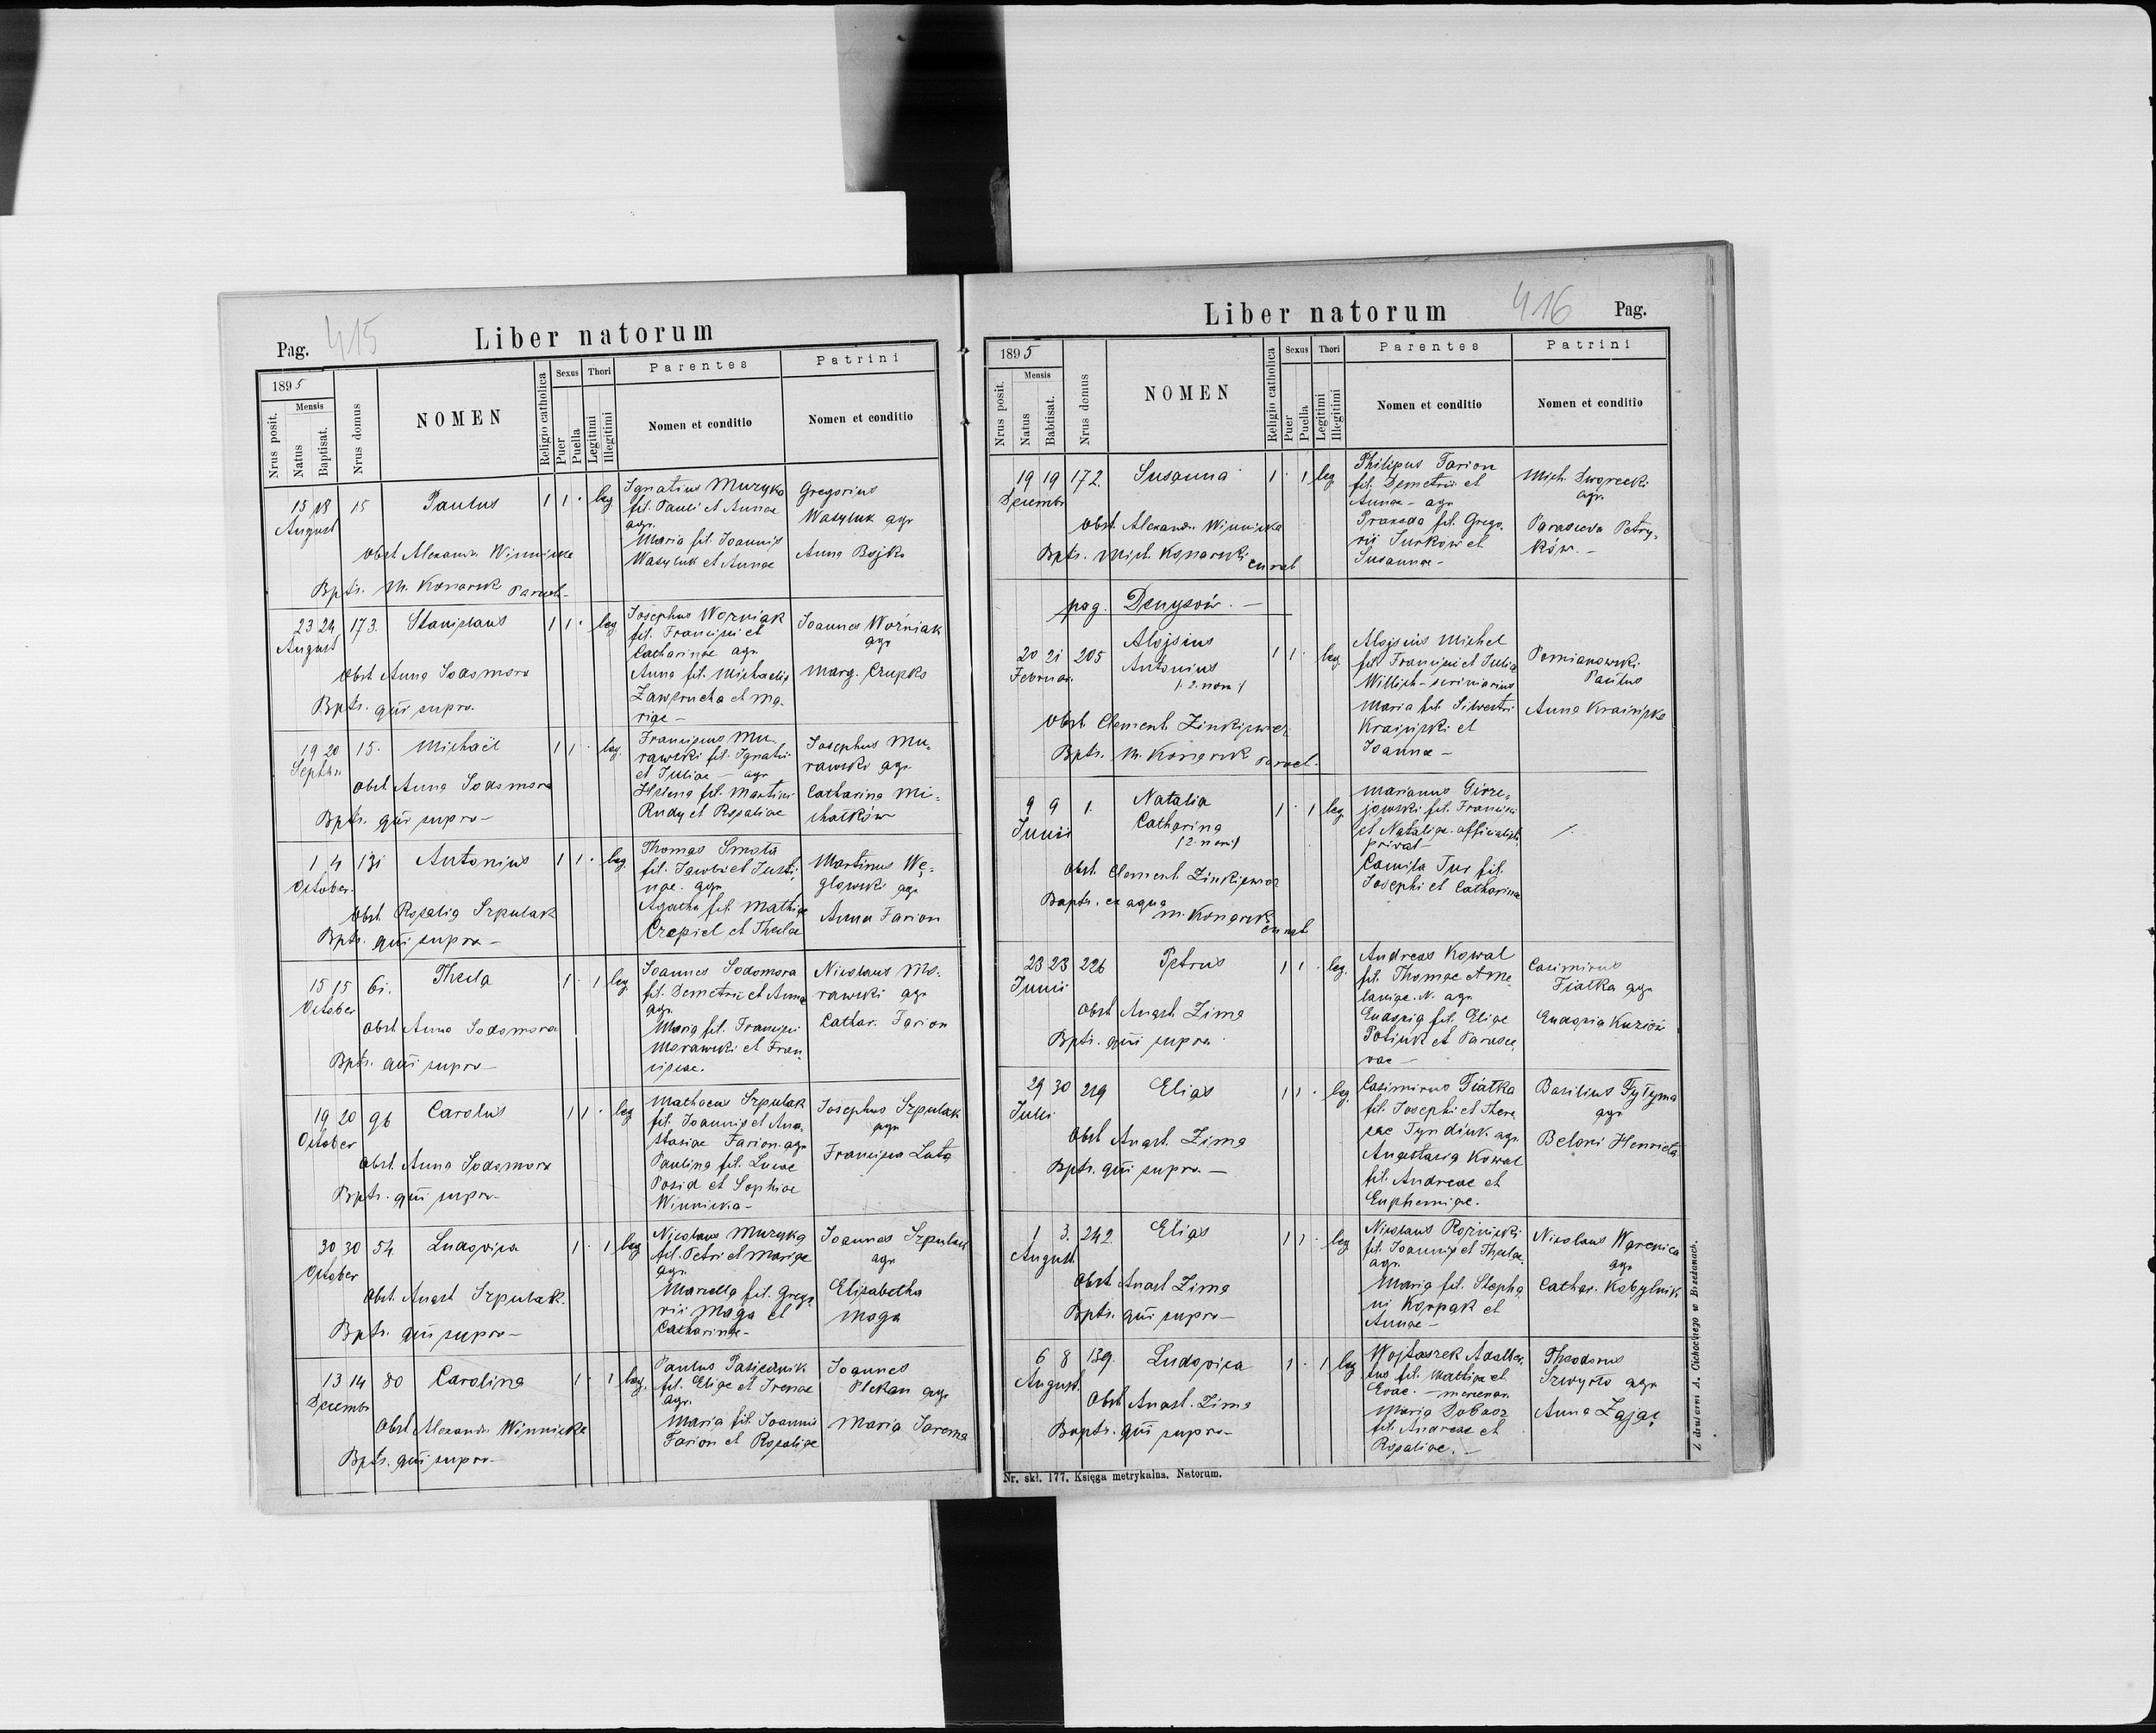 Pag. 415 Liber natorum
1895
Nrus posit.
Mensis
Natus
Baptisat.
Nrus domus
NOMEN
Religio catholica
Sexus
Puer
Puella
Thori
Legitimi
Illegitimi
Parentes
Nomen et conditio
Patrini
Nomen et conditio
15 18 15 Paulus 1 1 · leg
August
Obst Alexandr Winnicka
Bpts. M. Konarsk Paroch-
Ignatius Muzyka
fil. Pauli et Annae
agr.
Maria fil. Joannis
Wasyluk et Annae
Gregorius
Wasyluk agr
Anna Bojko
23 24 173. Stanislaus 1 1 · leg
August
Obst Anna Sodomora
Bptr. qui supra-
Josephus Worniak
fil. Francisci et
Catharinae agr
Anna fil. Michaelis
Zawerucha et Ma-
riae -
Joannes Woźniak
agr
Marg. Czupko
19 20 15. Michaël 1 1 · leg.
Septbr.
Obst Anna Sodomora
Bptr. qui supra-
Franciscus Mu-
rawski fil. Ignatii
et Juliae - agr
Helena fil. Martini
Rudy et Rosaliae
Josephus Mu-
rawski agr
Catharina Mi-
chałków
1 4 131 Antonius 1 1 · leg.
October.
Obst Rosalia Szpulak
Bptr. qui supra-
Thomas Smota
fil. Jacobi et Justi-
nae. agr
Agatha fil. Mathiae
Czepiel et Theclae
Martinus Wę-
glowski agr
Anna Farion
15 15 61. Thecla 1 · 1 leg
October
Obst Anna Sodomora
Bptr. qui supra-
Joannes Sodomora
fil. Demetrii et Annae
agr
Maria fil. Francisci
Morawski et Fran-
ciscae.
Nicolaus Mo-
rawski agr
Cathar. Farion
19 20 96 Carolus 1 1 · leg
October
Obst Anna Sodomora
Bptr. qui supra-
Mathaeus Szpulak
fil. Joannis et Ana-
stasiae Farion. agr
Paulina fil. Lucae
Posid et Sophiae
Winnicka-
Josephus Szpulak
agr
Francisca Lata
30 30 54 Ludovica 1 · 1 leg
October
Obst. Anast Szpulak.
Bptr. qui supra-
Nicolaus Muzyka
fil. Petri et Mariae
agr.
Marcella fil. Grego
rii Maga et
Catharinae-
Joannes Szpulak
agr
Elisabetha
Maga
13 14 80 Carolina 1 · 1 leg.
Decembr
Obst Alexandr Winnicka
Bptr. qui supra-
Paulus Pasiecznik
fil. Eliae et Irenae
agr.
Maria fil. Joannis
Farion et Rosaliae
Joannes
Plekan agr
Maria Jarema
Liber natorum 416 Pag.
1895
Nrus posit.
Mensis
Natus
Babtisat.
Nrus domus
NOMEN
Religio catholica
Sexus
Puer
Puella
Thori
Legitimi
Illegitimi
Parentes
Nomen et conditio
Patrini
Nomen et conditio
19 19 172. Susanna 1 · 1 leg
Decembr
Obst. Alexandr. Winnicka
Bptr. Mich. Konarski curat
Philipus Farion
fil. Demetrii et
Annae - agr
Praxeda fil. Grego-
rii Jurków et
Susannae-
Mich. Dworecki
agr
Parasceva Petry-
ków. -
pag. Denysów. -
20 21 205 Alojsius 1 1 · leg
Februar. Antonius
/. 2. nom /
Obst Clement. Zinkiewicz
Bptr. M. Konarsk paroch.
Alojsius Michel
fil. Francisci et Julia
Willich - scriniarius
Maria fil. Silvestri
Kraiński et
Joannae -
Pomianowski
Paulus
Anna Kraińska
9 9 1. Natalia 1 · 1 leg
Junii Catharina
/2 nom/
Obst. Clement. Zinkiewicz
Baptr. ex aqua
M. Konarski curat
Marianus Girze-
jowski fil. Francisci
et Nataliae. officialist.
privat-
Camila Jus fil.
Josephi et Catharinae
/.
23 23 226 Petrus 1 1 · leg.
Junii
Obst Anast Zima
Bptr. qui supra
Andreas Kowal
fil. Thomae et Me
laniae. N. agr
Eudoxia fil. Eliae
Potiuk et Parasce-
vae -
Casimirus
Fiałka agr
29 30 219 Elias 1 1 · leg.
Julii
Obst Anast. Zima
Bptr. qui supra. -
Casimirus Fiałka
fil. Josephi et There
sae Tyndiuk agr.
Anastasia Kowal
fil. Andreae et
Euphemiae.
Basilius Tytyma
agr
Beloni Henrieta
1 3. 242 Elias 1 1 · leg
August.
Obst Anast Zima
Bptr. qui supra-
Nicolaus Rożnicki
fil. Joannis et Theclae
agr.
Maria fil. Stepha
ni Karpak et
Annae-
Nicolaus Warenica
agr
Cathar. Kobylnik
6 8 139. Ludovica 1 · 1 leg
August.
Obst Anast. Zima
Baptr. qui supra-
Wojtaszek Adalber
tus fil. Mathiae et
Evae. - mercenar.
Maria Dobosz
fil. Andreae et
Rosaliae. -
Theodorus
Szwyrło agr
Anna Zając
Nr. skł. 177. Księga metrykalna. Natorum.
Z drukarni A. Cichockiego w Brzeżanach.